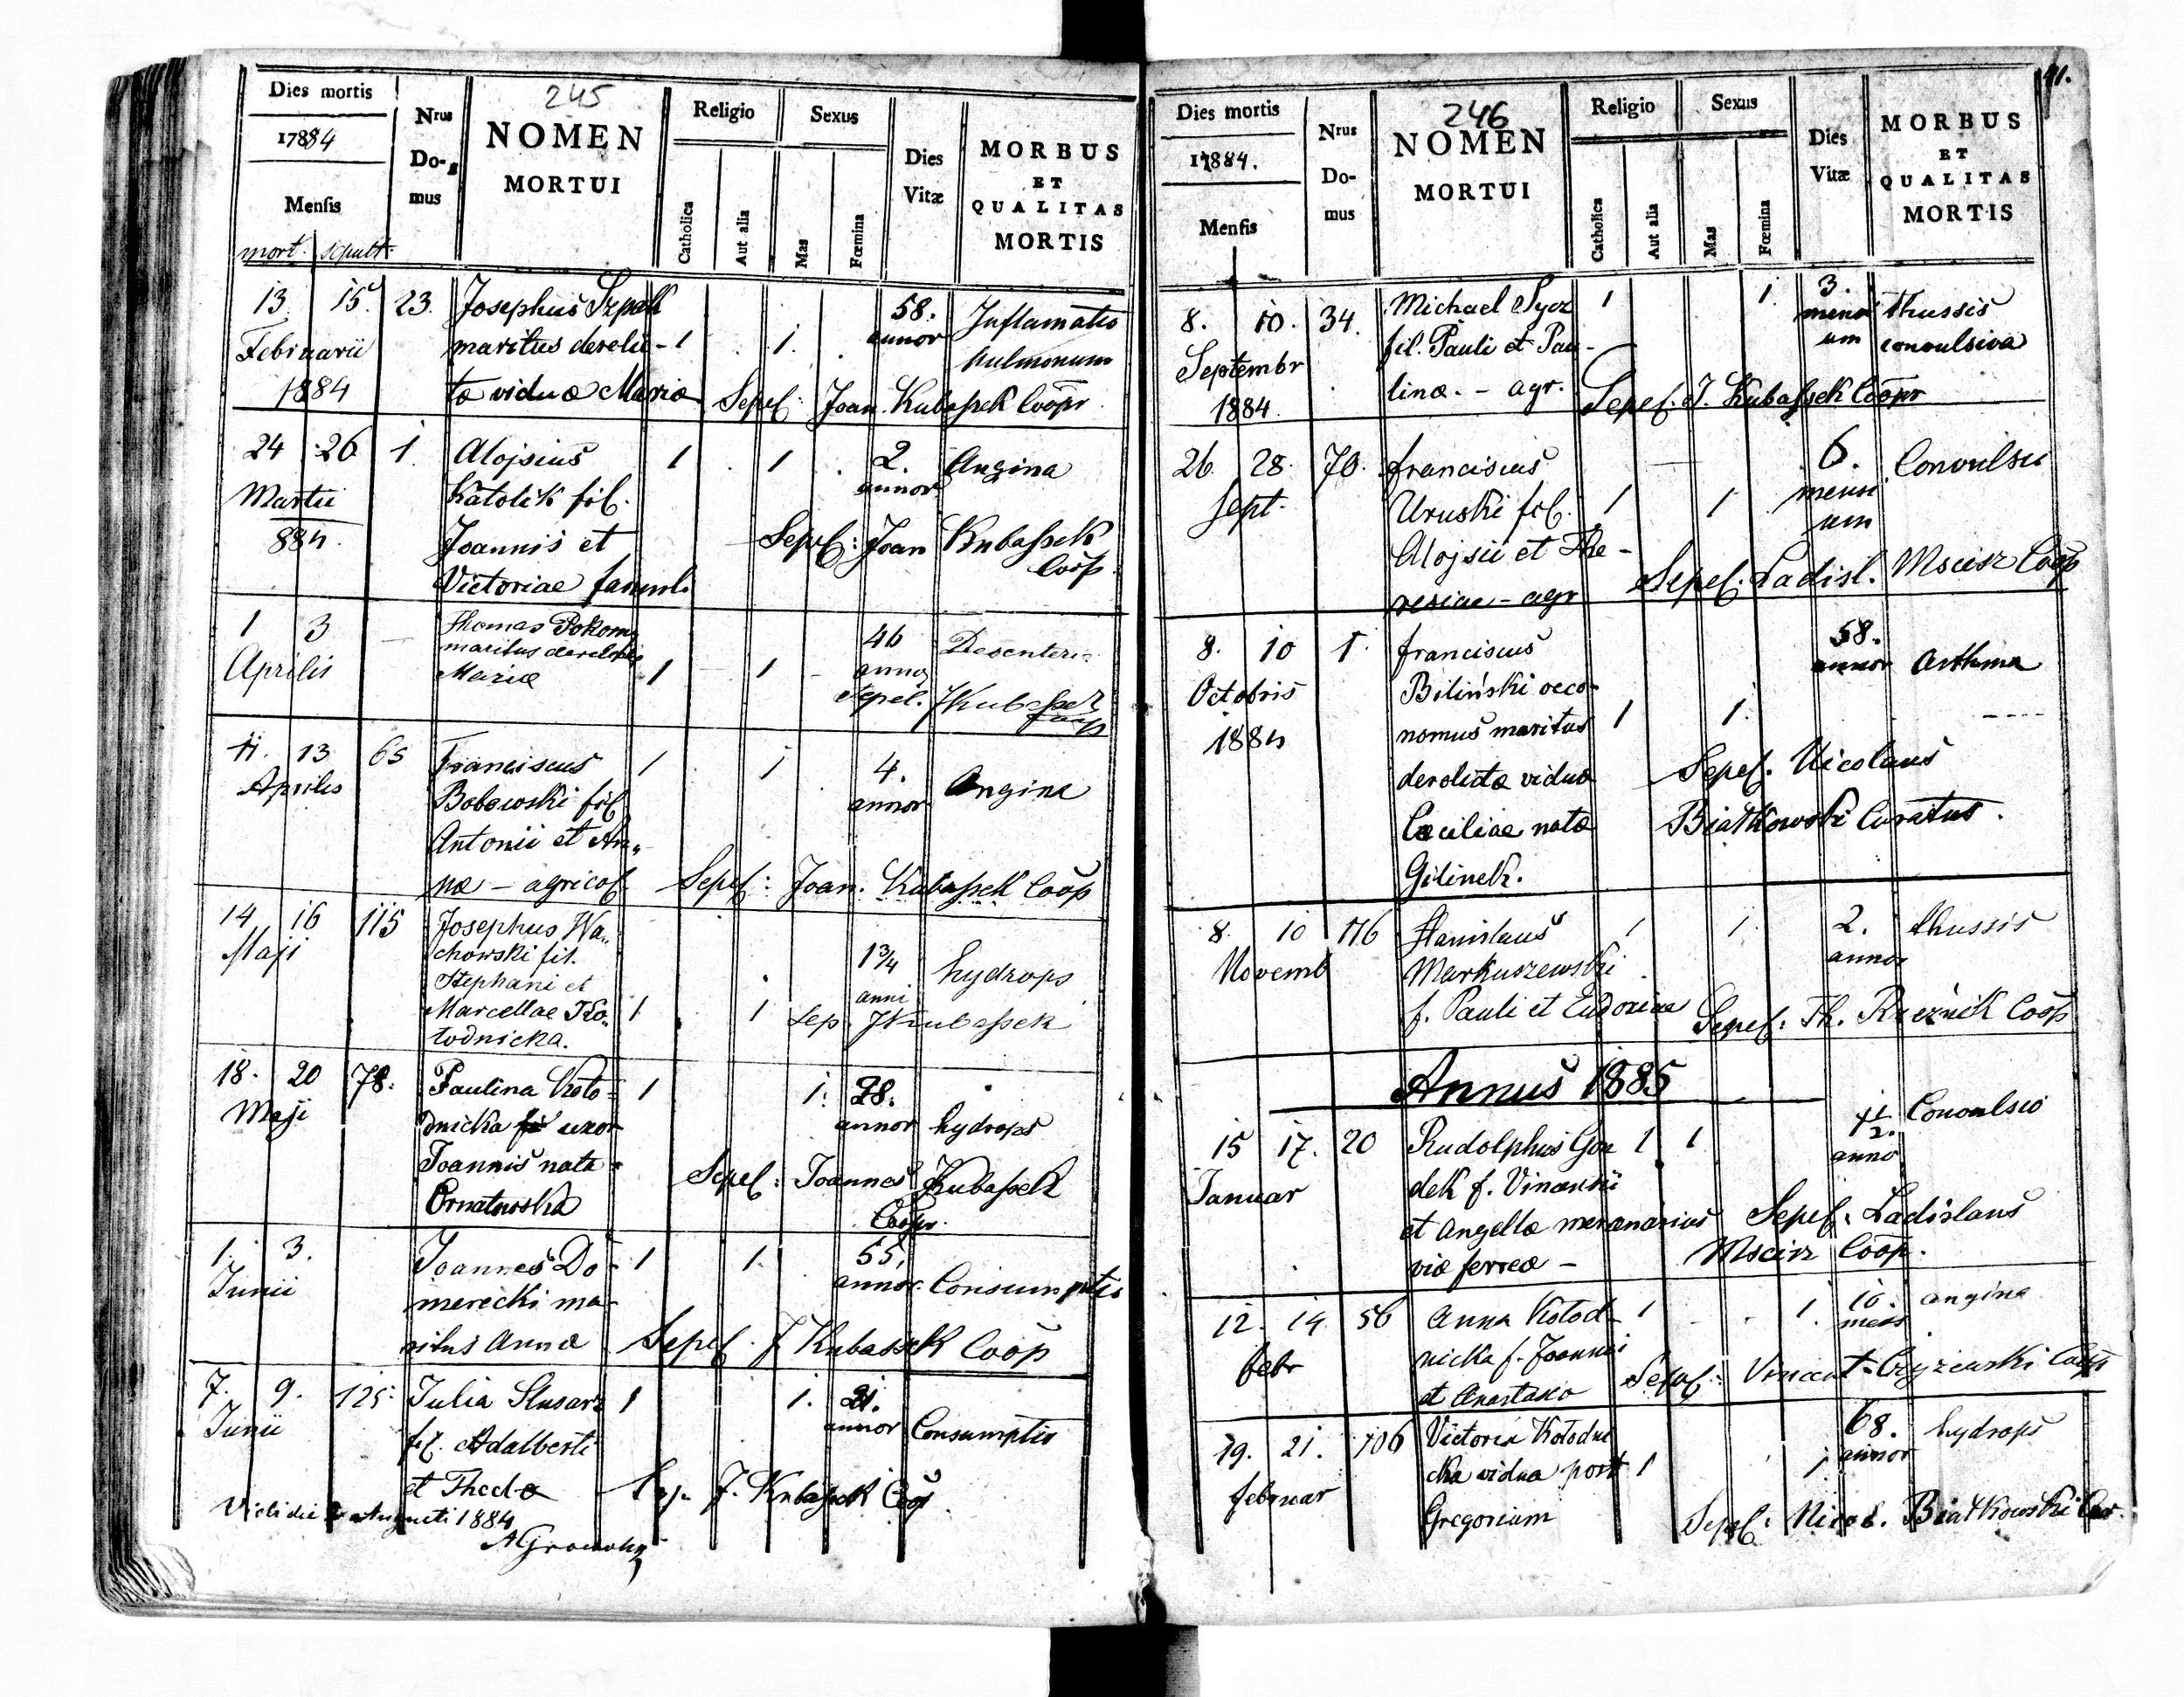 245
Dies mortis
17884
Mensis
mort. sepult.
Nrus
Do-
mus
NOMEN
MORTUI
Religio
Catholica
Aut alia
Sexus
Mas
Fœmina
Dies
Vitæ
MORBUS
ET
QUALITAS
MORTIS
13. 15. 23. Josephus Szpak 58. Inflamatio
Februarii maritus derelic- 1 1. annor pulmonum
1884 tæ viduæ Mariæ Sepel: Joan. Kubassek Coopr.
24 26 1. Alojsius 1 1 2. Angina
Martii Katolik fil. annor
884. Joannis et Sepel: Joan Kubassek
Victoriae famuli Coop.
1 3 Thomas
Aprilis maritus derelictæ 46
Mariæ 1 1 annor
Sepel. J Kubassek
Coop
11. 13 65 Franciscus 1 1 4. Angina
Aprilis Bobowski fil annor
Antonii et An-
næ - agricol. Sepel: Joan. Kubassek Coop
14 16 115 Josephus Wa-
Maji chowski fil. 1 3/4 hydrops
Stephani et anni
Marcellae Ko- 1 1 Sep. J Kubassek
łodnicka.
18. 20 78. Paulina Koło- 1 1. 28.
Maji dnicka uxor annor hydrops
Joannis nata Sepel: Joannes Kubassek
Ornatowska Coopr.
1. 3. Joannes Do- 1 1. 55.
Junii merecki ma- annor. Consumptio
ritus Annæ Sepel. J Kubassek Coop
7. 9. 125. Julia Slusarz 1 1. 21.
Junii fil. Adalberti annor Consumptio
et Theclæ Sep. J. Kubassek Coop
Vidi die Augusti 1884
91.
246
Dies mortis
17884.
Mensis
Nrus
Do-
mus
NOMEN
MORTUI
Religio
Catholica
Aut alia
Sexus
Mas
Fœmina
Dies
Vitæ
MORBUS
ET
QUALITAS
MORTIS
8. 10. 34. Michael Sycz 1 1. 3. thussis
Septembr fil. Pauli et Pau- mensi convulsiva
1884. linæ. - agr. um
Sepel. J. Kubassek Coopr
26. 28. 70. Franciscus 6. Convulsio
Sept. Uruski fil. 1 1 mensi
Alojsii et The- um
resiae - agr Sepel. Ladisl. Mscisz Coop
8. 10 1. Franciscus 58.
Octobris Biliński oeco- annor Asthma
1884 nomus maritus 1 1.
derelictæ viduæ Sepel. Nicolaus
Cæciliae natæ Białkowski Curatus.
Gilinek.
8. 10 116 Stanislaus 1 1. 2. thussis
Novemb Markuszewski annor
f. Pauli et Eudoxiae Sepel: Th. Rueznik Coop
Annus 1885
15 17. 20 Rudolphus Gon 1 1 1/2. Convulsio
Januar dek f. Vincentii anno
et Angellæ mercenarius Sepel. Ladislaus
viæ ferreæ - Mscisz Coop.
12. 14 56 Anna Kołod- 1 1. 16. angina
febr nicka f. Joannei mens
et Anastasiæ Sepel: Vincent. Coop
19. 21. 106 Victoria Kołodni 68. hydrops
februar cka vidua post 1 1 annor
Gregorium Sepel: Nicol. Białkowski Cur.